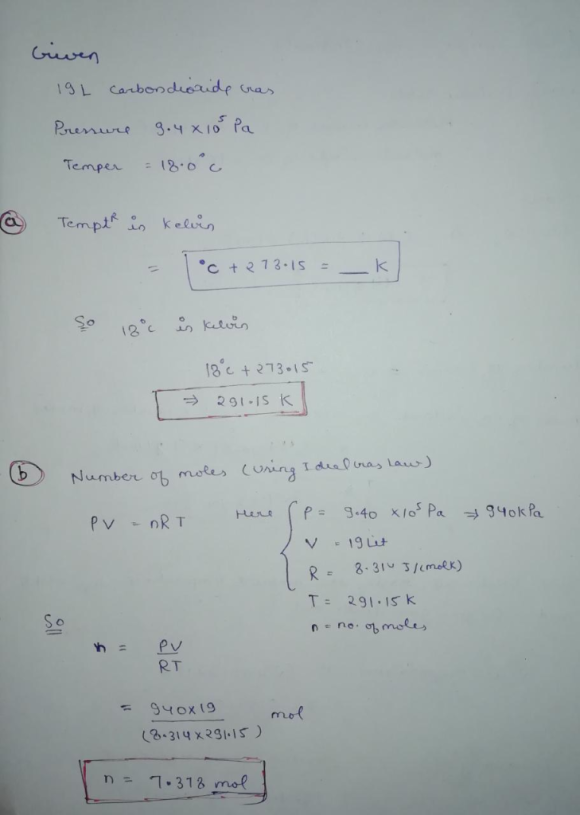 Given
19L carbondioxide Gas
Pressure 9.4 x 10⁵ Pa
Temper = 18.0°C
(a) Temptᴿ in Kelvin
= °C + 273.15 = __ K
So 18°C in Kelvin
18°C + 273.15
⇒ 291.15 K
(b) Number of moles (Using Ideal Gas Law)
PV = nRT Here { P = 9.40 x 10⁵ Pa ⇒ 940kPa
V = 19 Lit
R = 8.314 J/(molK)
T = 291.15 K
n = no. of moles
So
n = PV
RT
= 940x19 mol
(8.314 x 291.15)
n = 7.378 mol